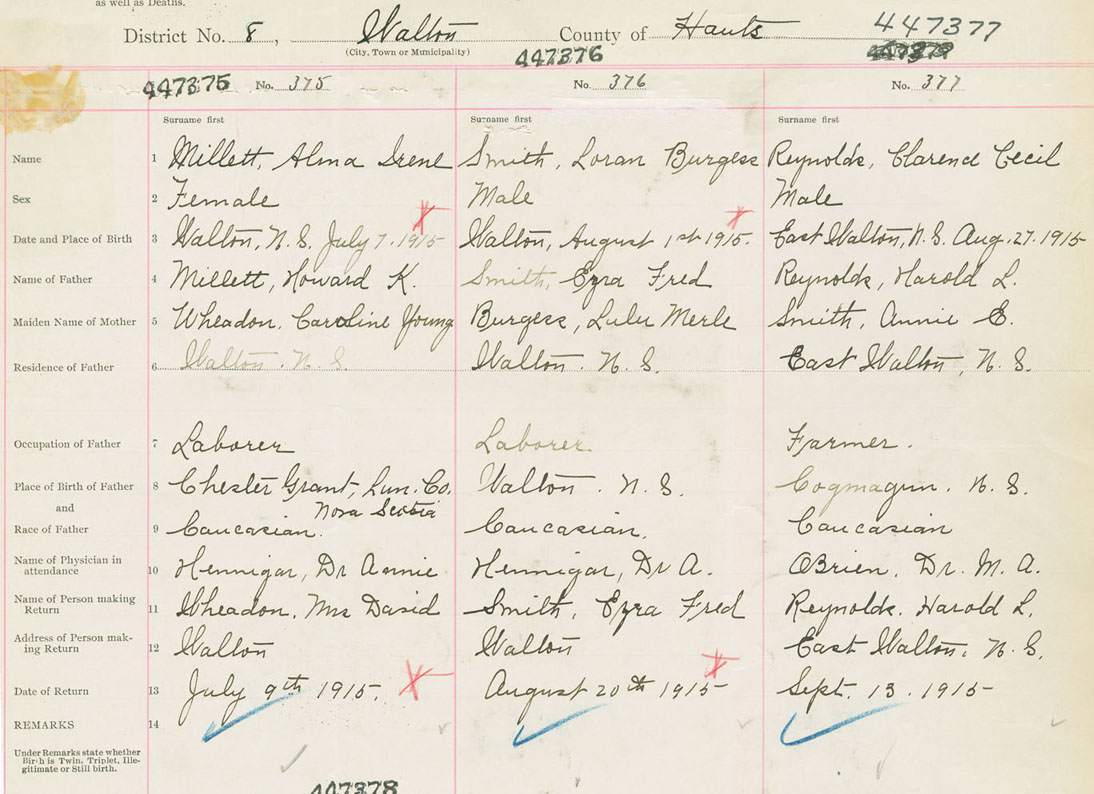 as well as Deaths.
District No. 8, Walton County of Hants 447377
(City, Town or Municipality)
447376
447375 No. 375 No. 376 No. 377
Surname first Surname first Surname first
Name 1 Millett, Alma Irene Smith, Loran Burgess Reynolds, Clarence Cecil
Sex 2 Female Male Male
Date and Place of Birth 3 Walton, N.S. July 7. 1915 Walton, August 1st 1915. East Walton, N.S. Aug. 27. 1915
Name of Father 4 Millett, Howard K. Smith, Ezra Fred Reynolds, Harold L.
Maiden Name of Mother 5 Wheadon, Caroline Young Burgess, Lulu Merle Smith, Annie E.
Residence of Father 6 Walton. N.S. Walton. N.S. East Walton, N.S.
Occupation of Father 7 Laborer Laborer Farmer.
Place of Birth of Father 8 Chester Grant, Lun. Co. Walton. N.S. Cogmagun. N.S.
and Nova Scotia
Race of Father 9 Caucasian. Caucasian. Caucasian
Name of Physician in
attendance 10 Hennigar, Dr Annie Hennigar, Dr A. OBrien. Dr. M. A.
Name of Person making
Return 11 Wheadon, Mrs David Smith, Ezra Fred Reynolds. Harold L.
Address of Person mak-
ing Return 12 Walton Walton East Walton. N.S.
Date of Return 13 July 9th 1915. August 20th 1915 Sept. 13. 1915
REMARKS 14
Under Remarks state whether
Birth is Twin, Triplet, Ille-
gitimate or Still birth.
447378